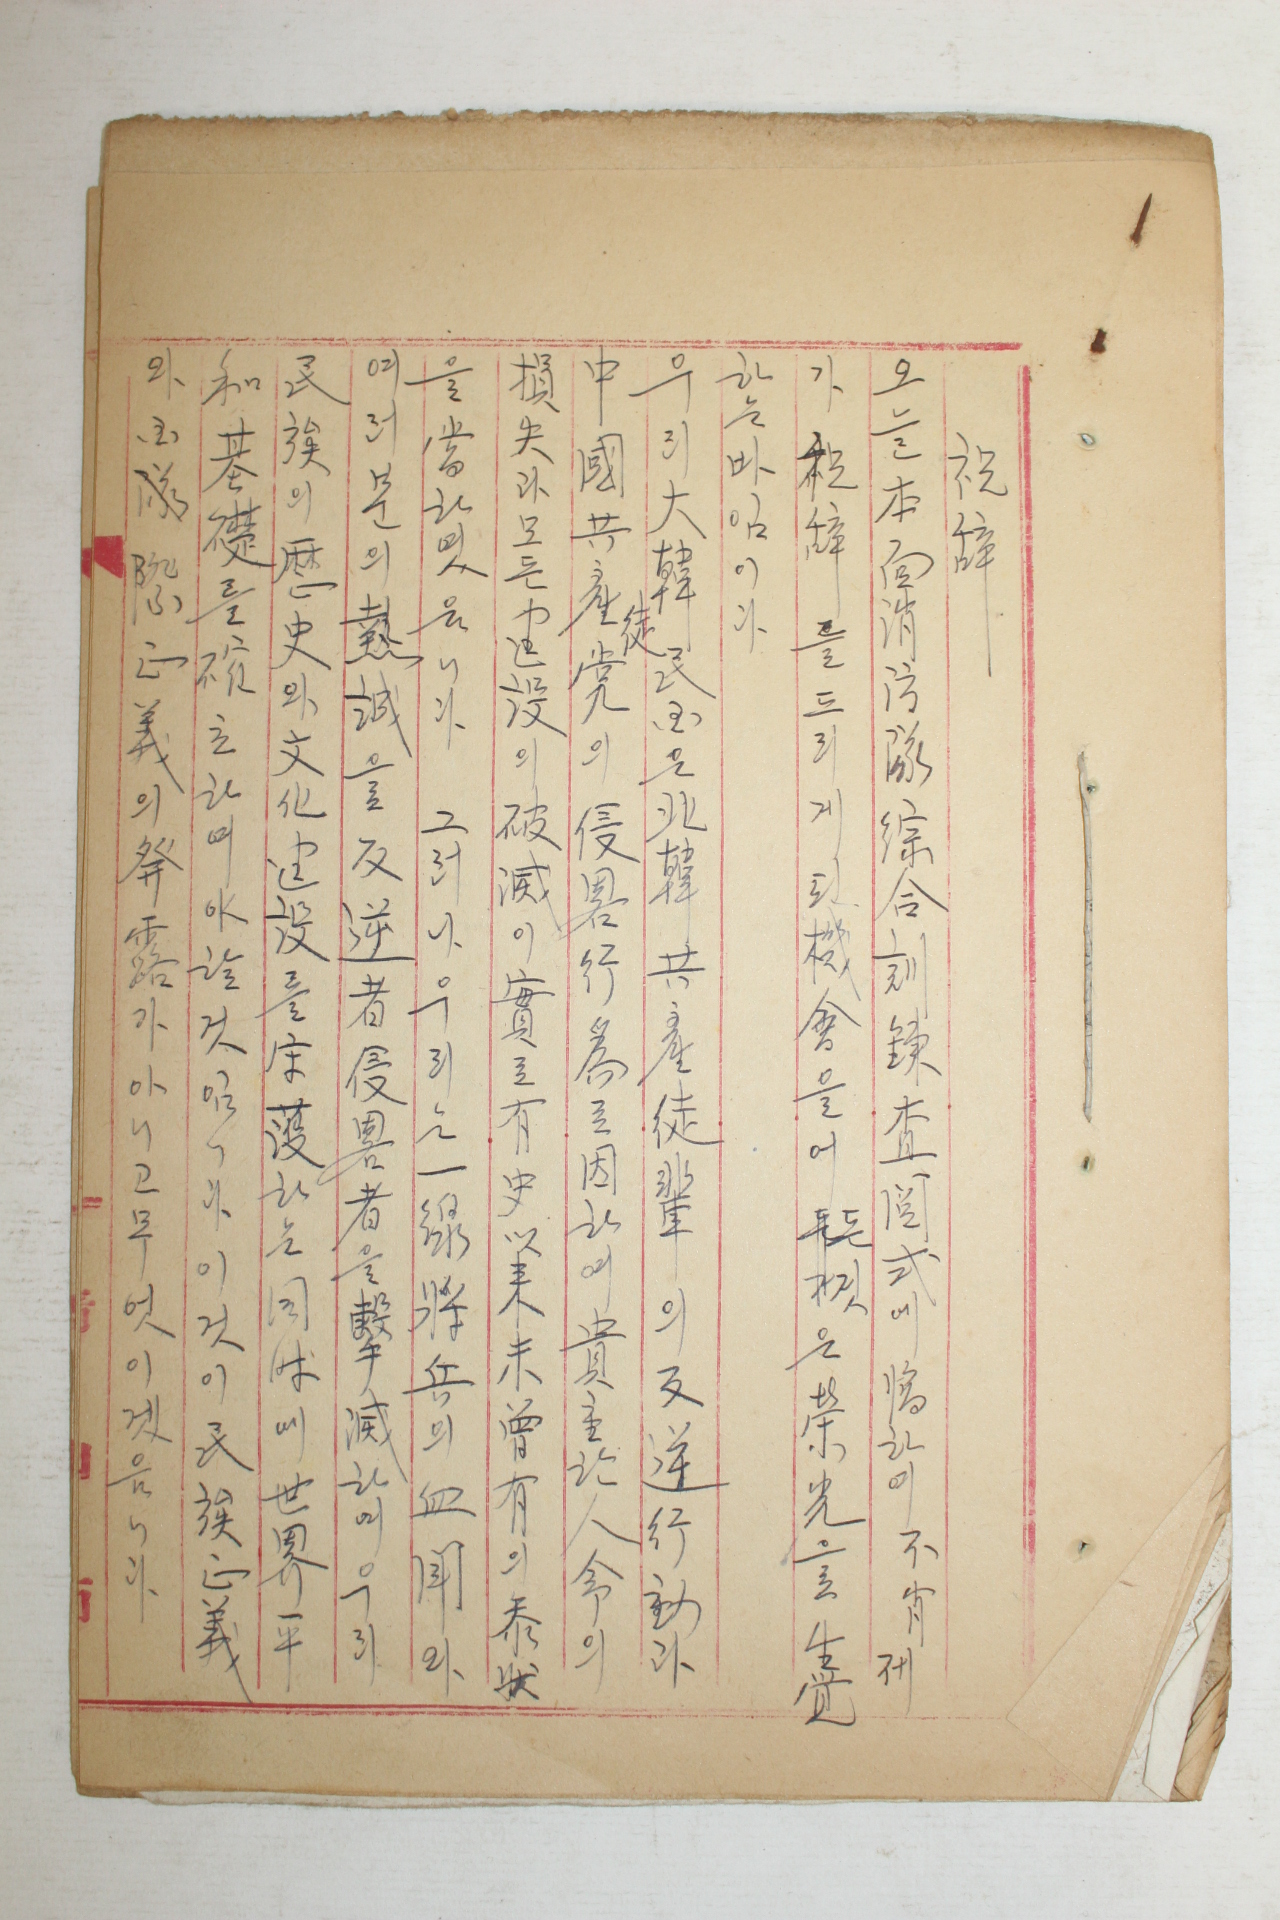 祝辭
오늘 本面消防隊綜合訓鍊査閲式에 臨하여 不肖 제
가 祝辭를 드리게 된 機會을 어든 것은 榮光으로 生覺
하는 바임이다
우리 大韓民国은 北韓共産徒輩의 反逆行動과
中國共産党徒의 侵畧行爲로 因하여 貴重한 人命의
損失과 모든 建設의 破滅이 實로 有史以来未曽有의 慘狀
을 當하였음니다 그러나 우리는 一線將兵의 血闘와
여러분의 熱誠으로 反逆者侵畧者을 擊滅하여 우리
民族의 歷史와 文化建設를 守護하는 同時에 世界平
和基礎를 確立하여야 할 것임니다 이것이 民族正義
와 国際正義의 発露가 아니고 무엇이겠음니다